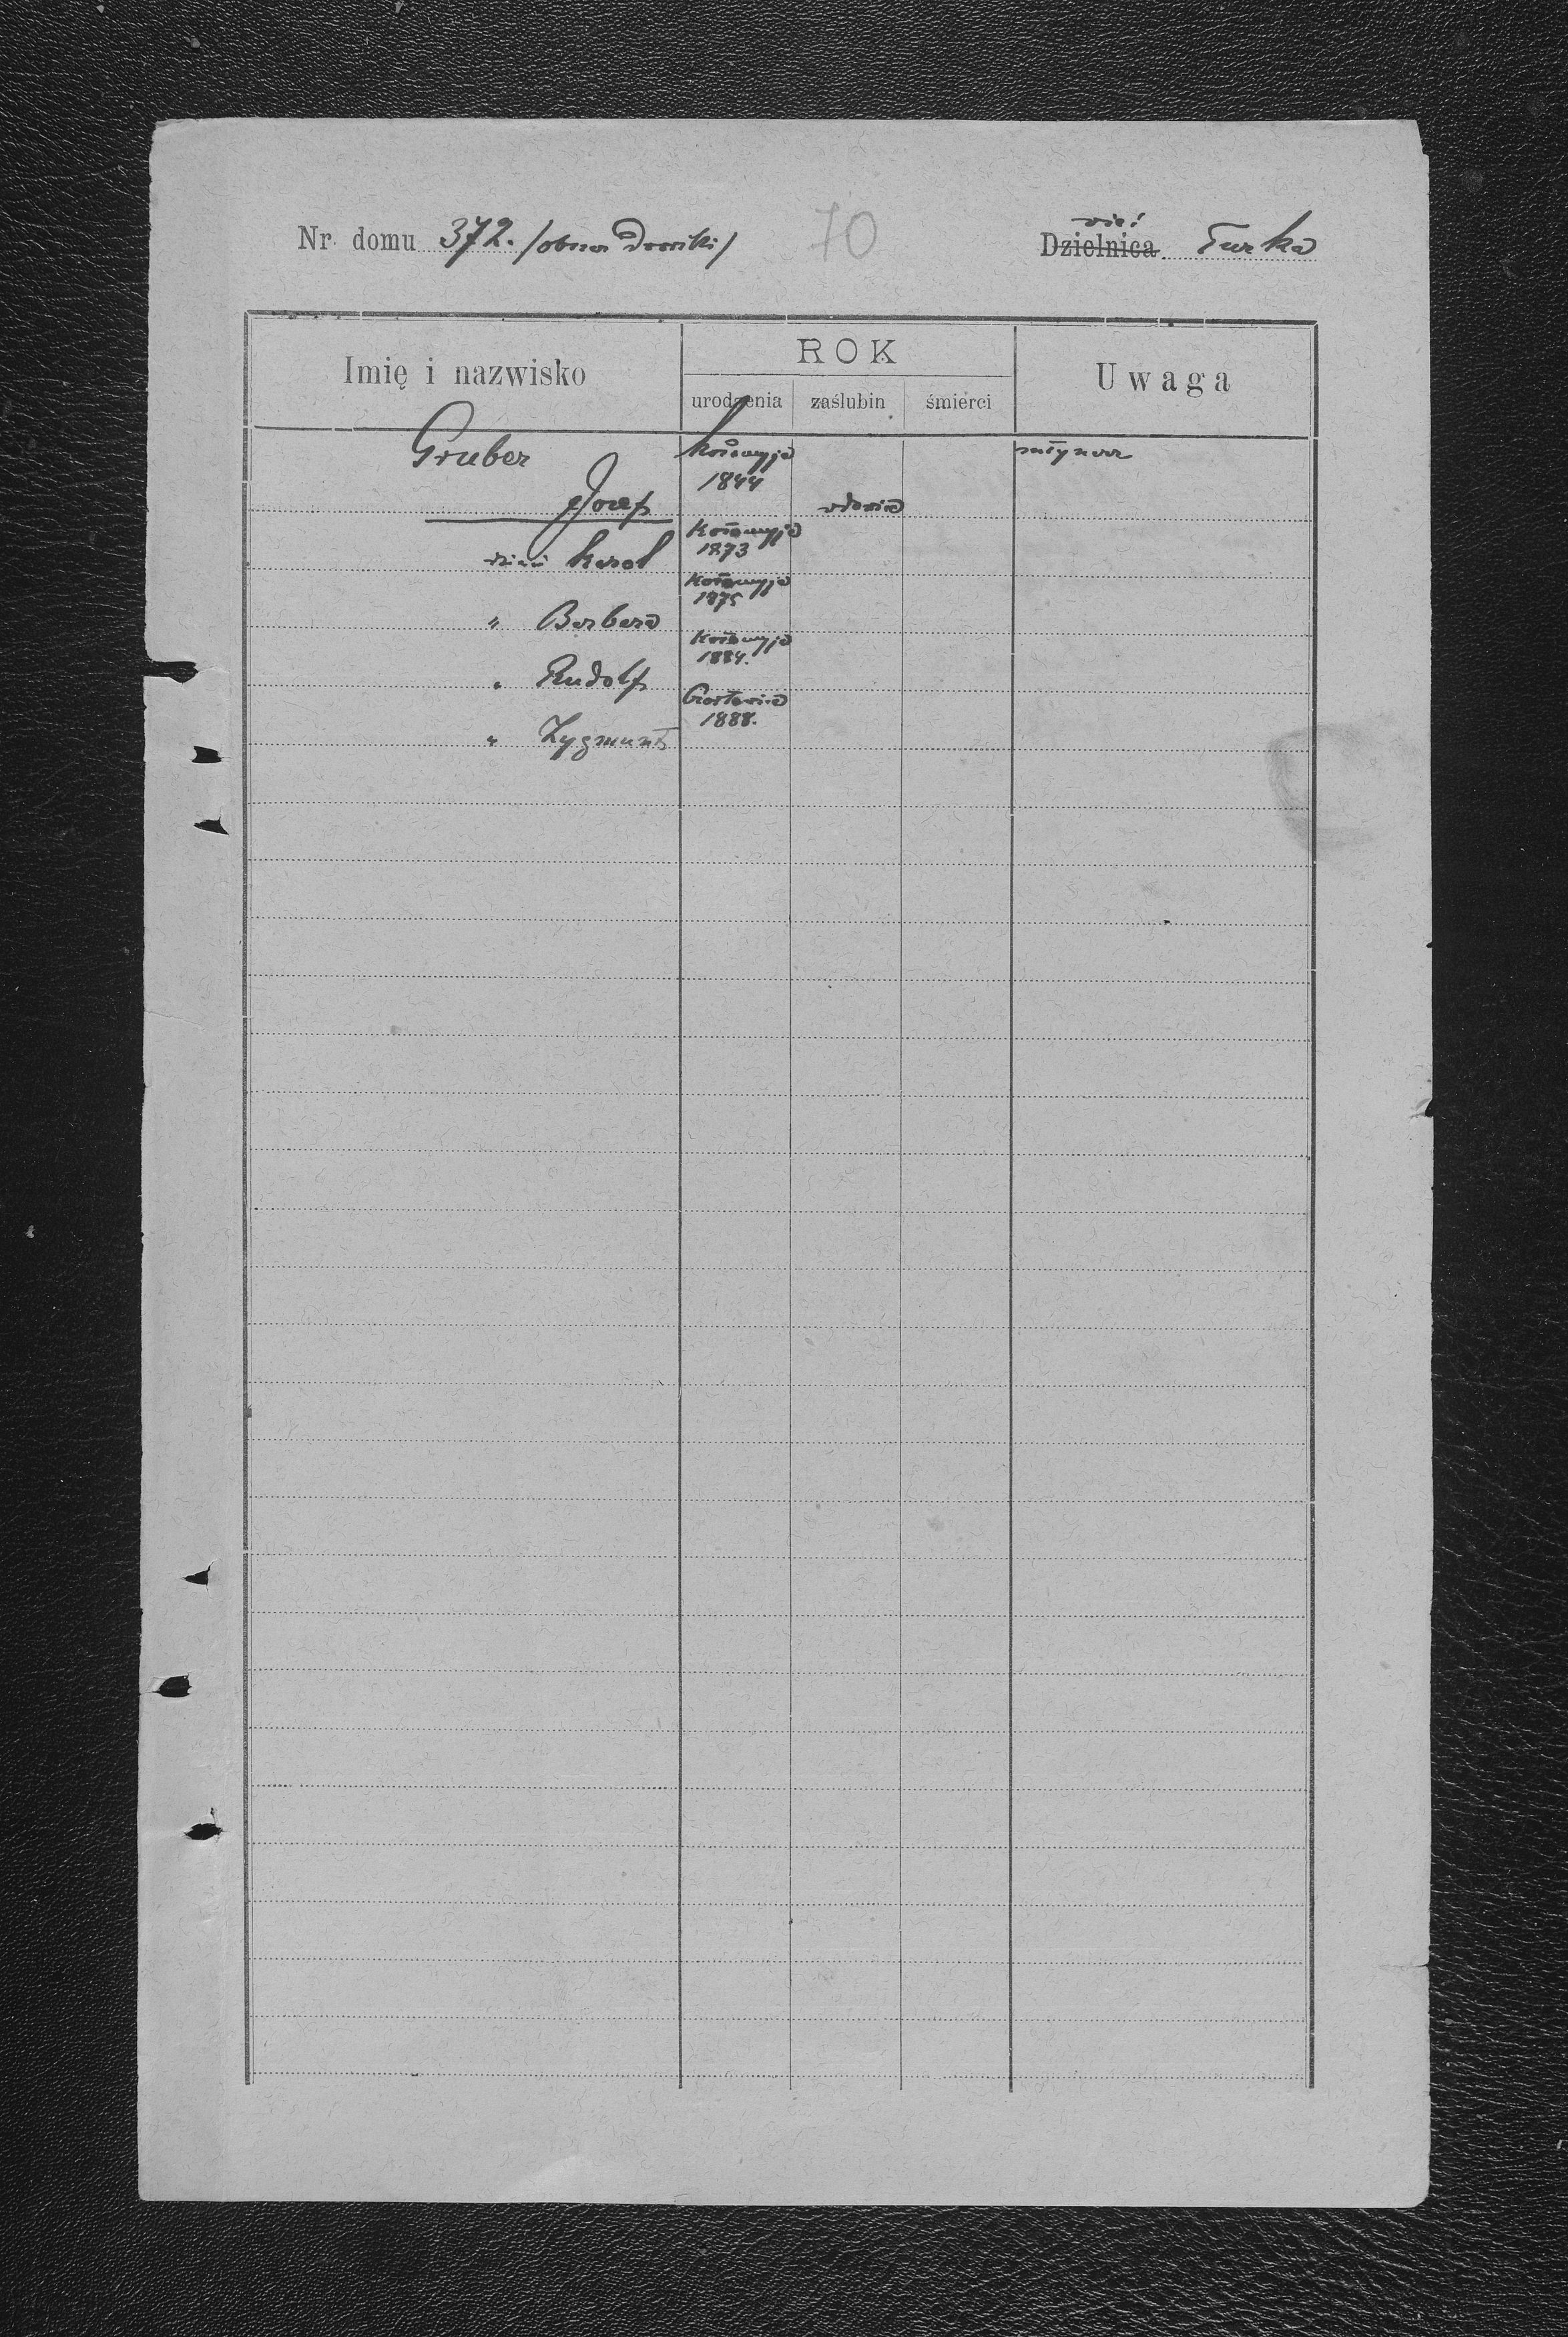 Nr domu 372. /obszar Dworski/
70
wieś
Dzielnica Turka
Imię i nazwisko
ROK
urodzenia zaślubin śmierci
Uwaga
Gruber Kołomyja młynarz
1844
Józef wdowiec
Kołomyja
dzieci Karol 1873
Kołomyja
1875
" Barbara
Kołomyja
1884.
" Rudolf
1888.
" Zygmunt